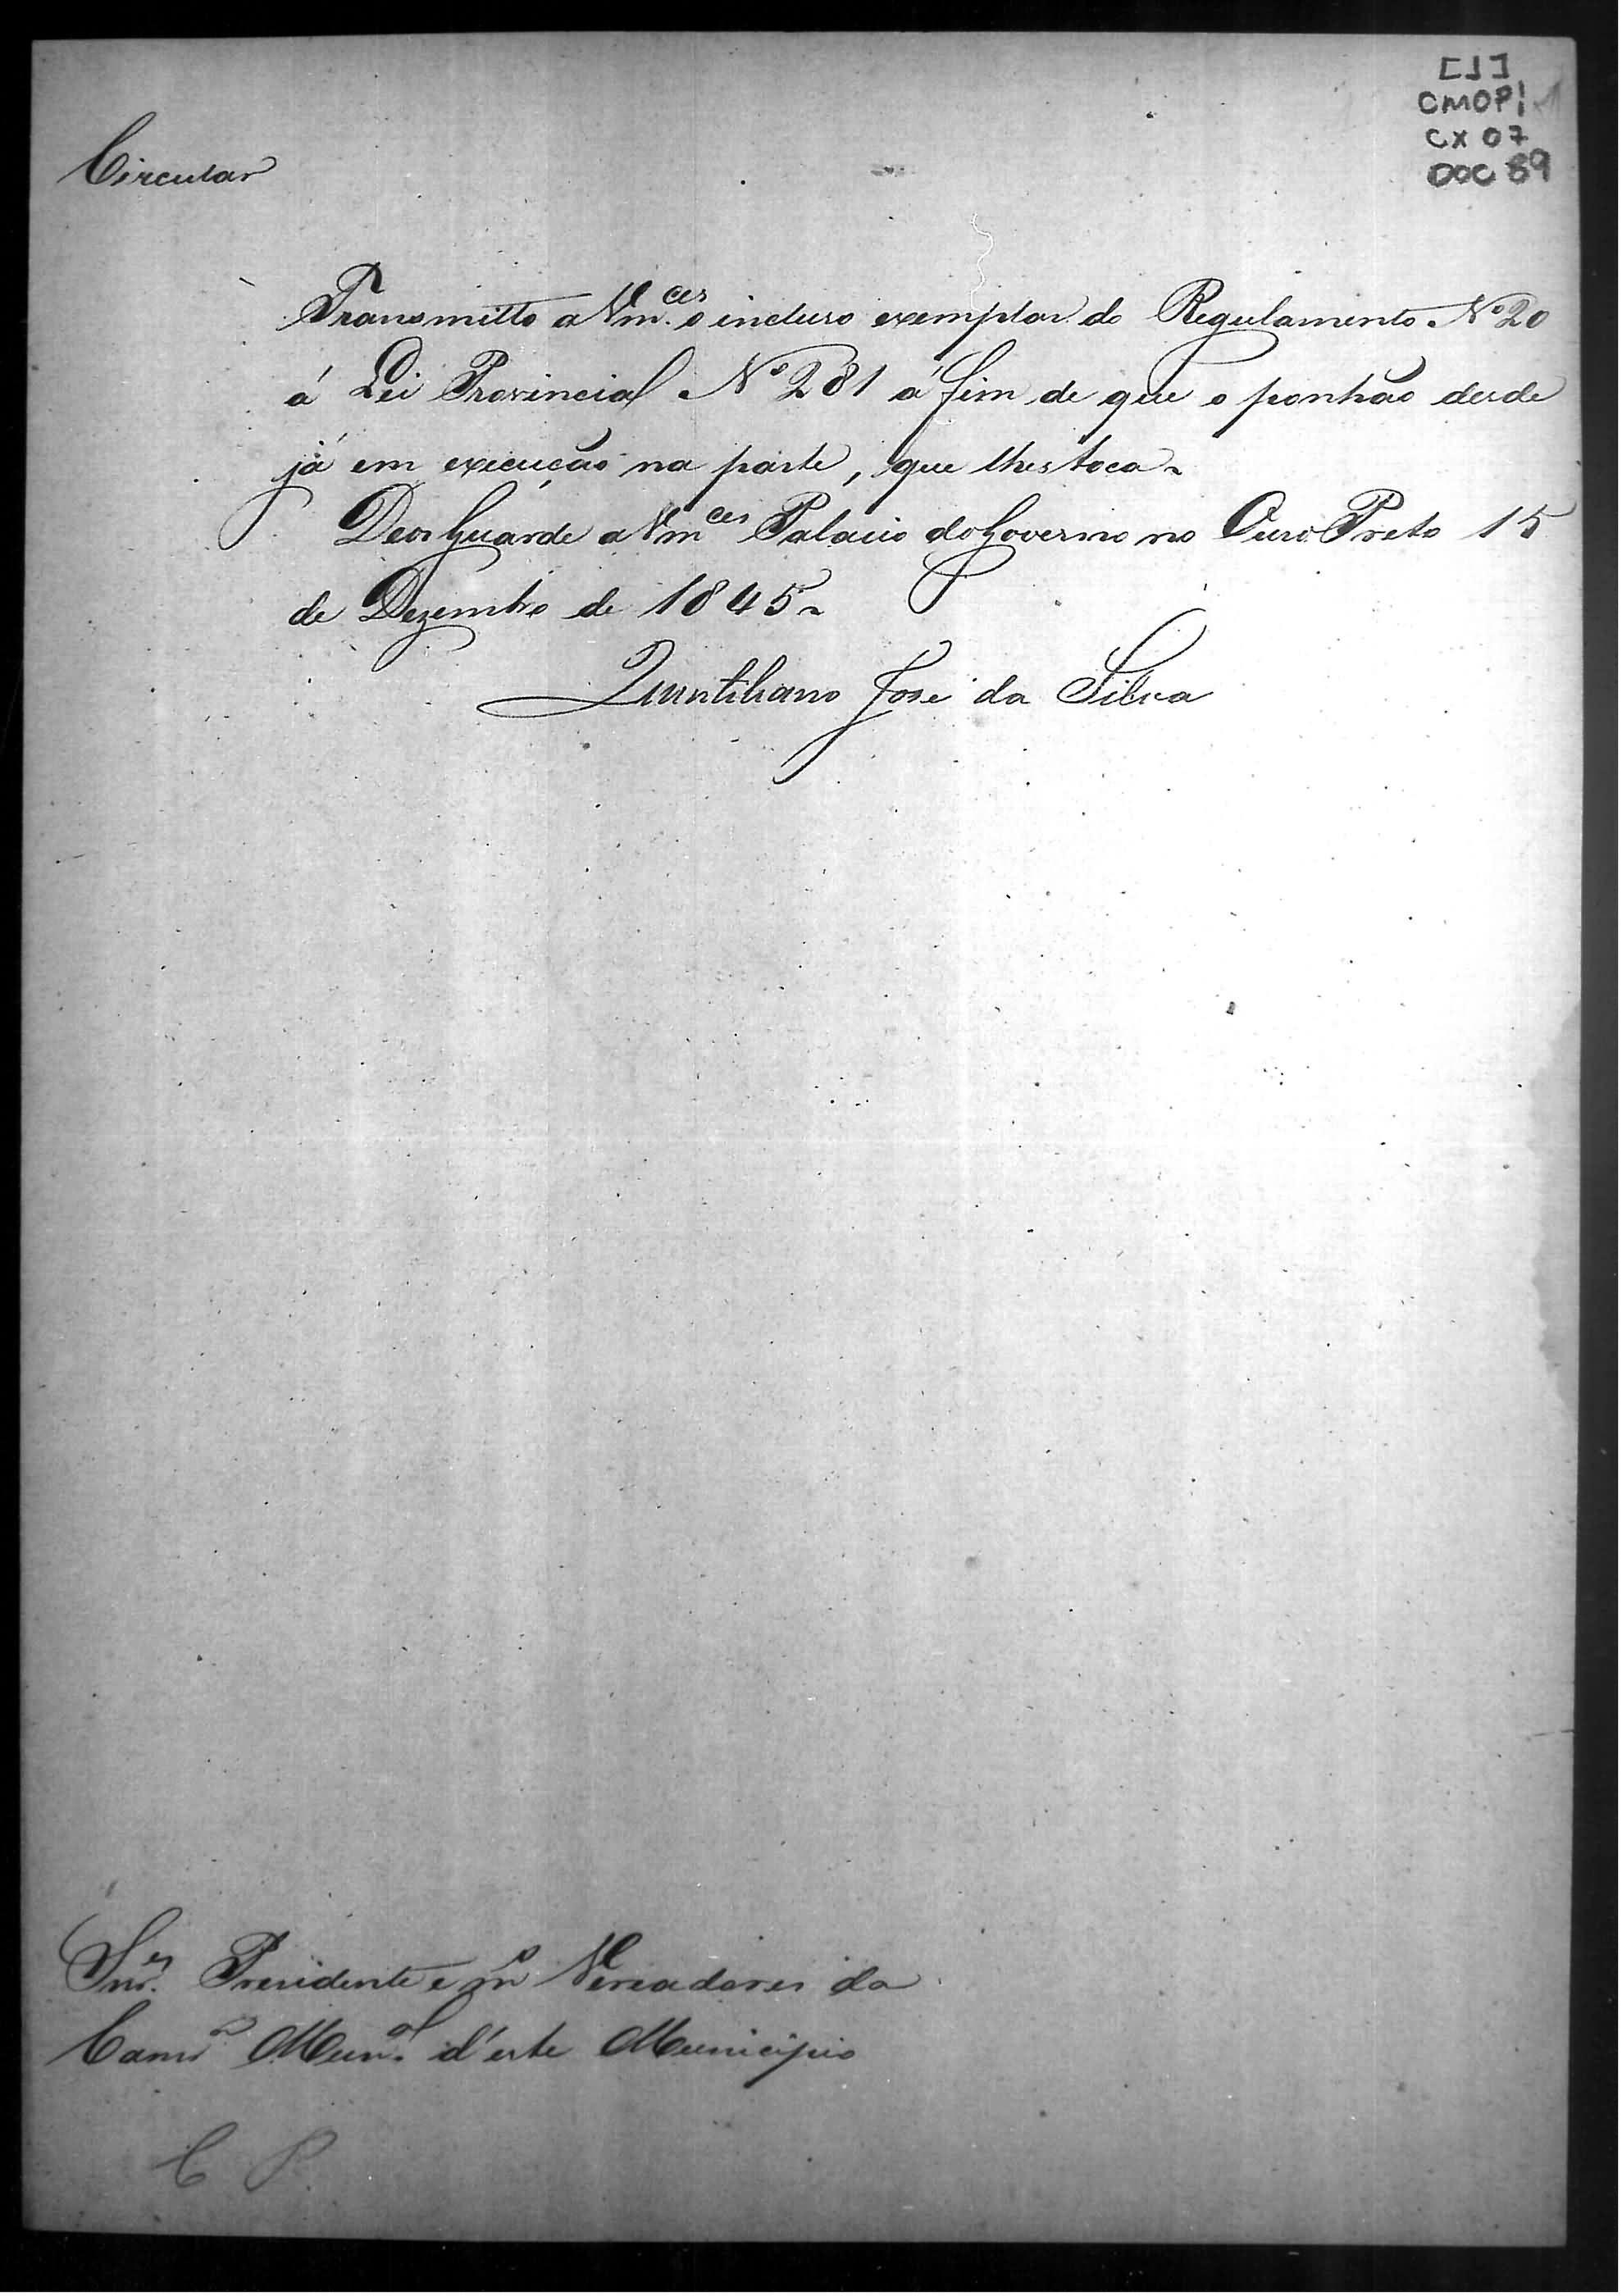 [1]
CMOP1
CX 07
DOC 89
Circular
Transmitto a Vm.ces o incluso exemplar do Regulamento Nº 20
á Lei Provincial Nº 281 á fim de que o ponhão desde
já em execução na parte, que lhes toca.
Deos Guarde a Vmces Palacio do Governo no Ouro Preto 15
de Dezembro de 1845.
Quintiliano José da Silva
Snr.es Presidente e m Vereadores da
Camra Mun.al d'este Municipio
C P